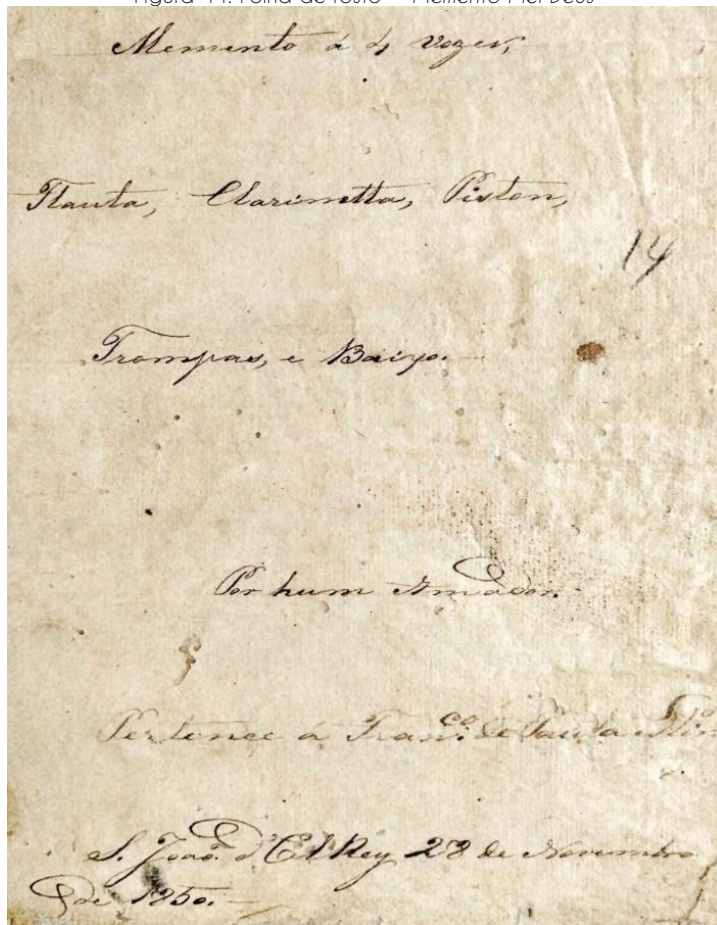 Figura 14: Folha de rosto – Memento Mei Deus
Memento á 4 vozes,
Flauta, Clarinetta, Piston,
14
Trompas, e Baixo.
Por hum Amador.
Pertence á Fran.co de Paula
S. João d'El Rey 28 de Novembro
de 1850.